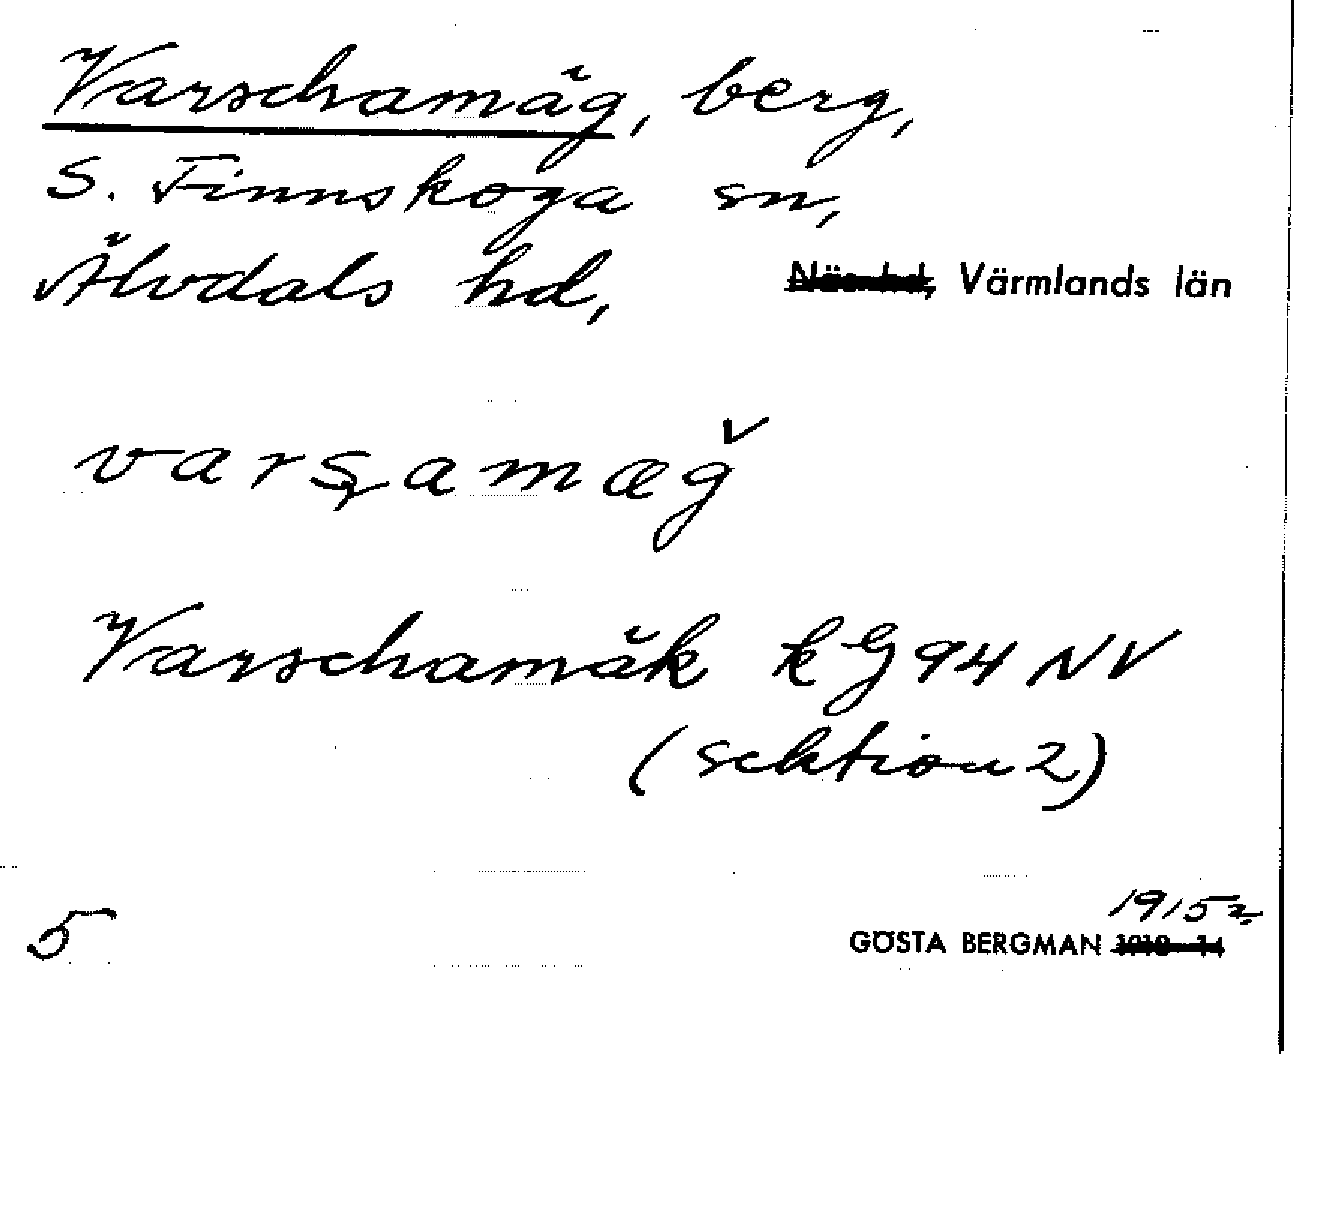 Varschamäg, berg,
S. Finnskoga sn,
Älvdals hd, Värmlands län
varʂamæğ
Varschamäk kG 94 NV
(sektion 2)
1915
5 GÖSTA BERGMAN